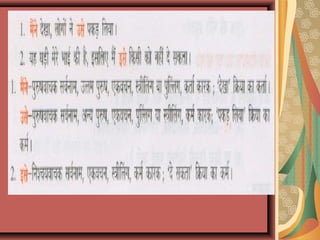 1. मैंने देखा, लोगों ने उसे पकड़ लिया।
2. यह घड़ी मेरे भाई की है, इसलिए मैं इसे किसी को नहीं दे सकता।
1. मैंने–पुरुषवाचक सर्वनाम, उत्तम पुरुष, एकवचन, स्त्रीलिंग या पुल्लिंग, कर्ता कारक; 'देखा' क्रिया का कर्ता।
उसे–पुरुषवाचक सर्वनाम, अन्य पुरुष, एकवचन, पुल्लिंग या स्त्रीलिंग, कर्म कारक; 'पकड़ लिया' क्रिया का
कर्म।
2. इसे–निश्चयवाचक सर्वनाम, एकवचन, स्त्रीलिंग, कर्म कारक; 'दे सकता' क्रिया का कर्म।